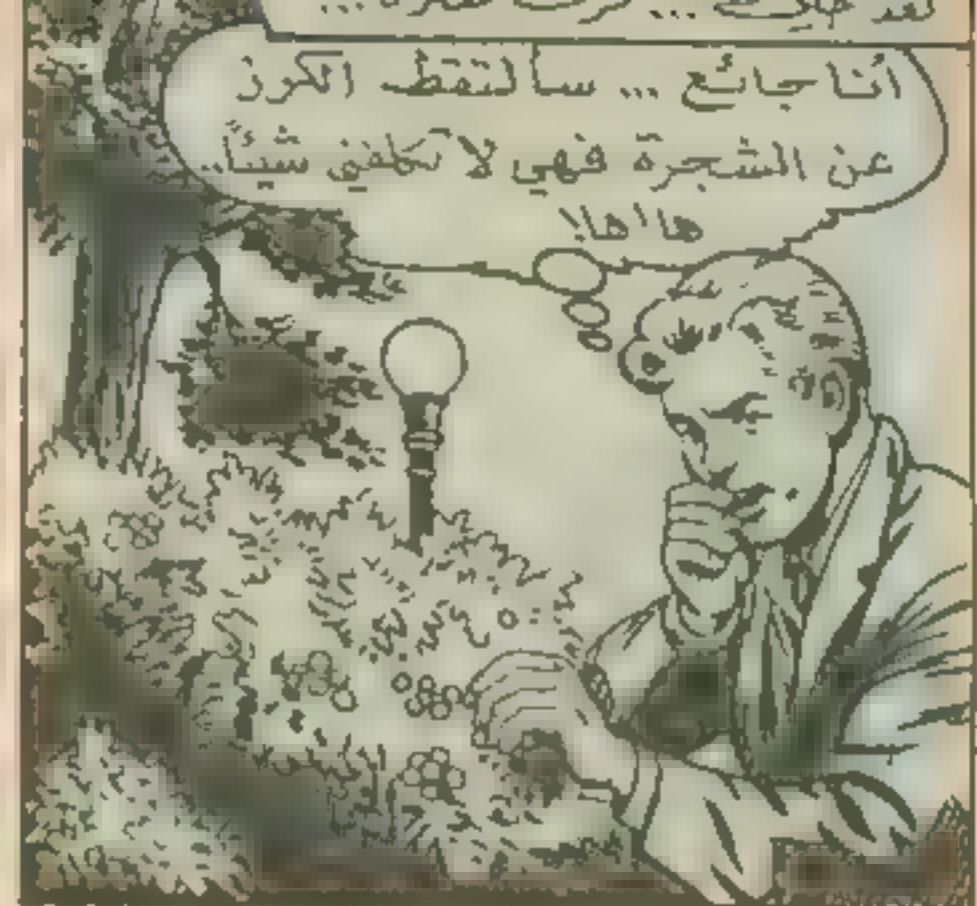 لقد
أنا جائع ... سألتقط الكرز
عن الشجرة فهي لا تكلفني شيئاً..
ها!ها!